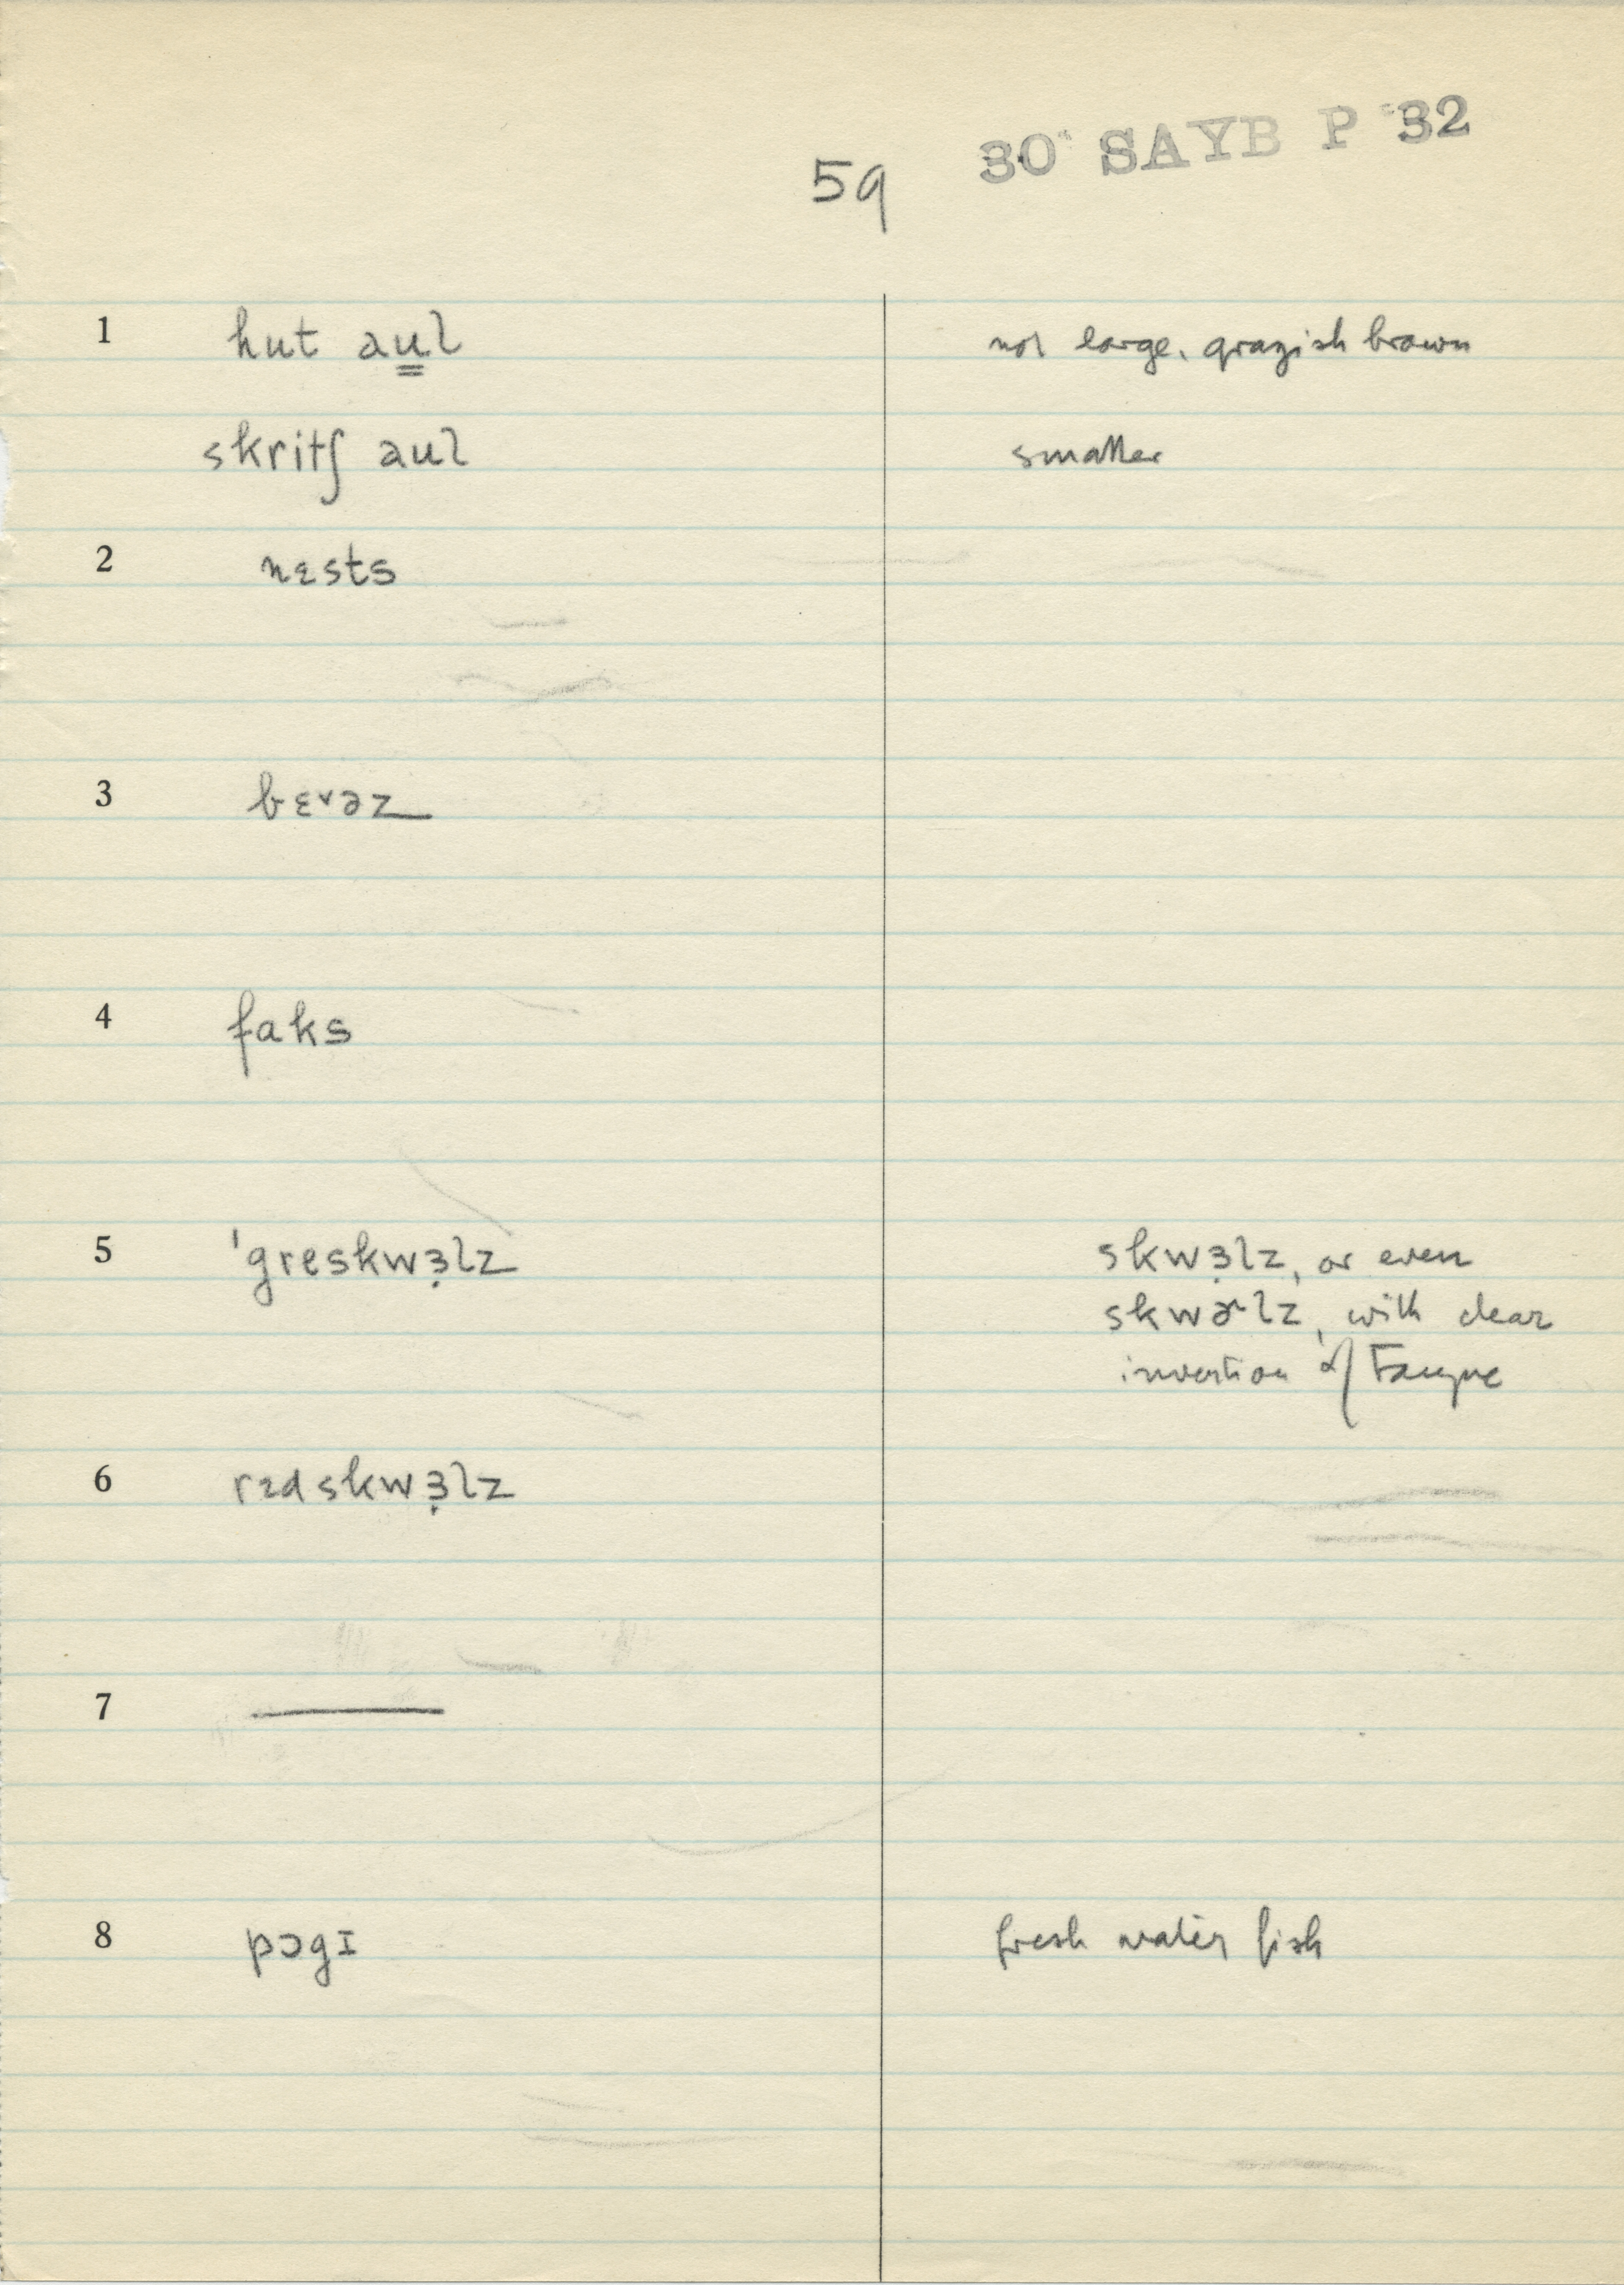 59 30 SAYB P 32
1 hut au̳l not large, grayish brown
skritʃ aul smaller
2 nɛsts
3 bɛvəz
4 faks
5 ˈgreskwɜ̣lz skwɜ̣lz, or even
skwɚlz, with clear
invertion of Tongue
6 rɛdskwɜ̣lz
7 ———
8 pɔgɪ fresh water fish